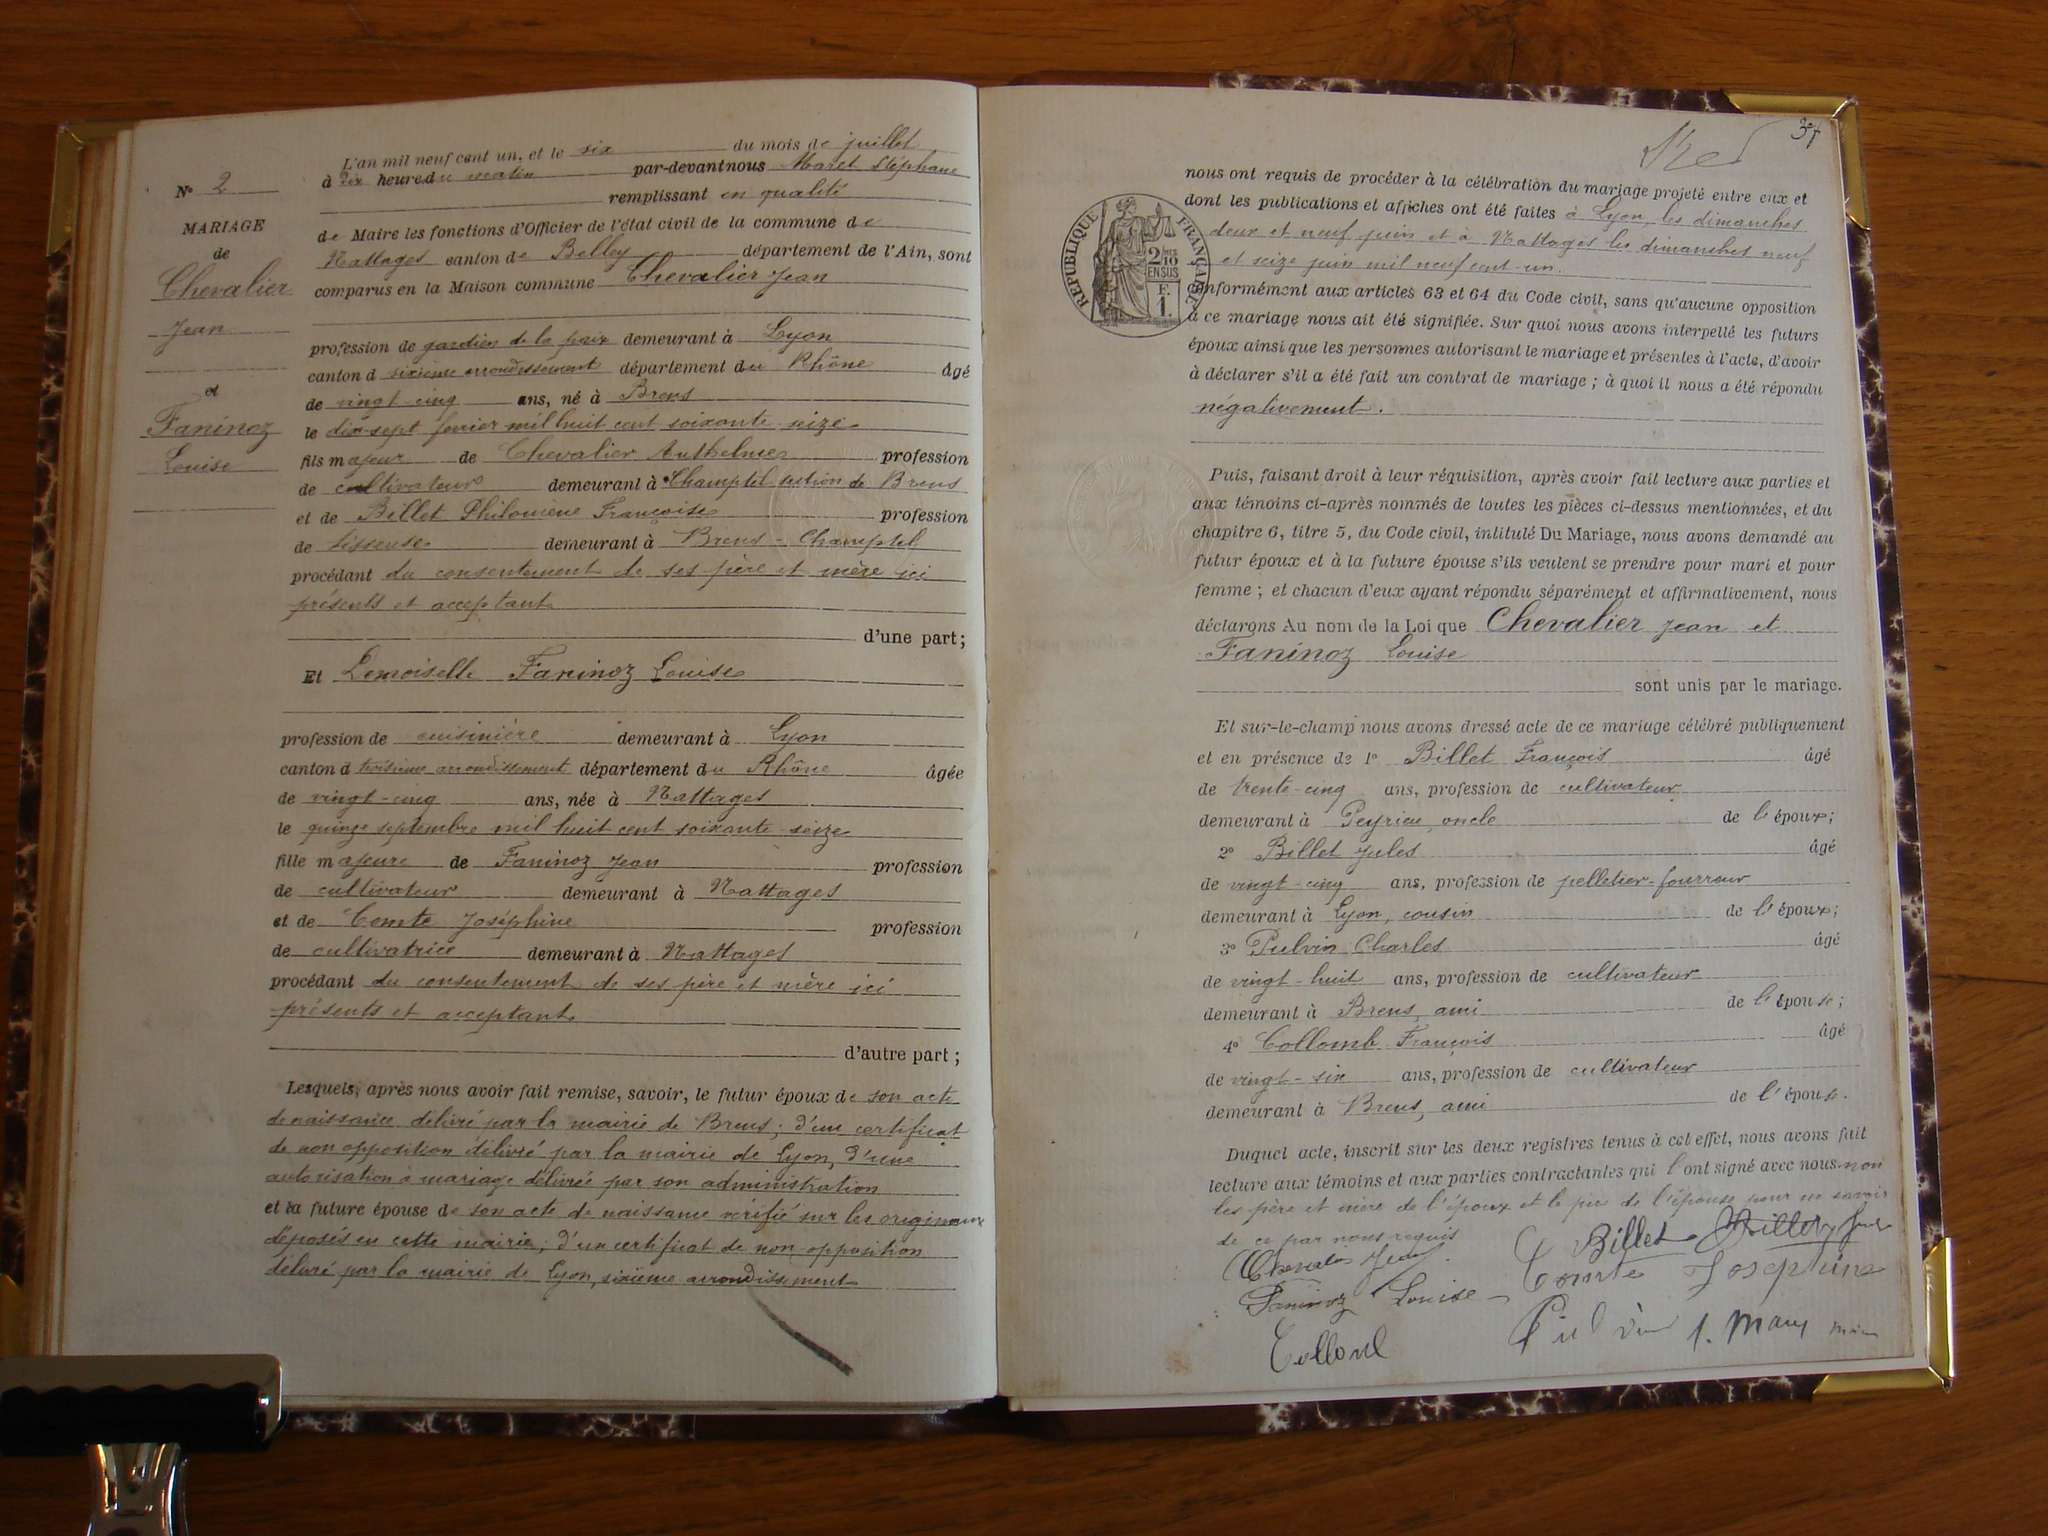 N° 2
MARIAGE
de
Chevalier
Jean
et
Faninoz
Louise
L'an mil neuf cent un, et le six du mois de juillet
à dix heure du matin par-devant nous Maret Stéphane
remplissant en qualité
de Maire les fonctions d'Officier de l'état civil de la commune de
Nattages canton de Belley département de l'Ain, sont
comparus en la Maison commune Chevalier Jean
profession de gardien de la paix demeurant à Lyon
canton d sixième arrondissement département du Rhône âgé
de vingt-cinq ans, né à Brens
le dix-sept fevrier mil huit cent soixante-seize
fils majeur de Chevalier Anthelme profession
de cultivateur demeurant à Champtel section de Brens
et de Billet Philomène Françoise profession
de tisseuse demeurant à Brens - Champtel
procédant du consentement de ses père et mère ici
présents et acceptant
d'une part;
Et Demoiselle Faninoz Louise
profession de cuisinière demeurant à Lyon
canton d troisième arrondissement département du Rhône âgée
de vingt-cinq ans, née à Nattages
le quinze septembre mil huit cent soixante-seize
fille majeure de Faninoz Jean profession
de cultivateur demeurant à Nattages
et de Comte Joséphine profession
de cultivatrice demeurant à Nattages
procédant du consentement de ses père et mère ici
présents et acceptant
d'autre part;
Lesquels, après nous avoir fait remise, savoir, le futur époux de son acte
de naissance délivré par la mairie de Brens; d'un certificat
de non opposition délivré par la mairie de Lyon, d'une
autorisation à mariage délivrée par son administration
et la future épouse de son acte de naissance vérifié sur les originaux
déposés en cette mairie; d'un certificat de non opposition
délivré par la mairie de Lyon, sixième arrondissement
37
nous ont requis de procéder à la célébration du mariage projeté entre eux et
dont les publications et affiches ont été faites à Lyon, les dimanches
deux et neuf juin et à Nattages les dimanches neuf
et seize juin mil neuf cent un.
RÉPUBLIQUE FRANÇAISE
2/10
EN SUS
F.
1.
conformément aux articles 63 et 64 du Code civil, sans qu'aucune opposition
à ce mariage nous ait été signifiée. Sur quoi nous avons interpellé les futurs
époux ainsi que les personnes autorisant le mariage et présentes à l'acte, d'avoir
à déclarer s'il a été fait un contrat de mariage; à quoi il nous a été répondu
négativement.
Puis, faisant droit à leur réquisition, après avoir fait lecture aux parties et
aux témoins ci-après nommés de toutes les pièces ci-dessus mentionnées, et du
chapitre 6, titre 5, du Code civil, intitulé Du Mariage, nous avons demandé au
futur époux et à la future épouse s'ils veulent se prendre pour mari et pour
femme; et chacun d'eux ayant répondu séparément et affirmativement, nous
déclarons Au nom de la Loi que Chevalier Jean et
Faninoz Louise
sont unis par le mariage.
Et sur-le-champ nous avons dressé acte de ce mariage célébré publiquement
et en présence de 1° Billet François âgé
de trente-cinq ans, profession de cultivateur
demeurant à Peyrieu, oncle de l'époux;
2° Billet Jules âgé
de vingt-cinq ans, profession de pelletier-fourreur
demeurant à Lyon, cousin de l'époux;
3° Pulvin Charles âgé
de vingt-huit ans, profession de cultivateur
demeurant à Brens, ami de l'épouse;
4° Collomb François âgé
de vingt-six ans, profession de cultivateur
demeurant à Brens, ami de l'épouse.
Duquel acte, inscrit sur les deux registres tenus à cet effet, nous avons fait
lecture aux témoins et aux parties contractantes qui l'ont signé avec nous non
les père et mère de l'époux et le père de l'épouse pour ne savoir
de ce par nous requis
Billet Billet
Chevalier Jean
Comte Joséphine
Faninoz Louise
Collomb